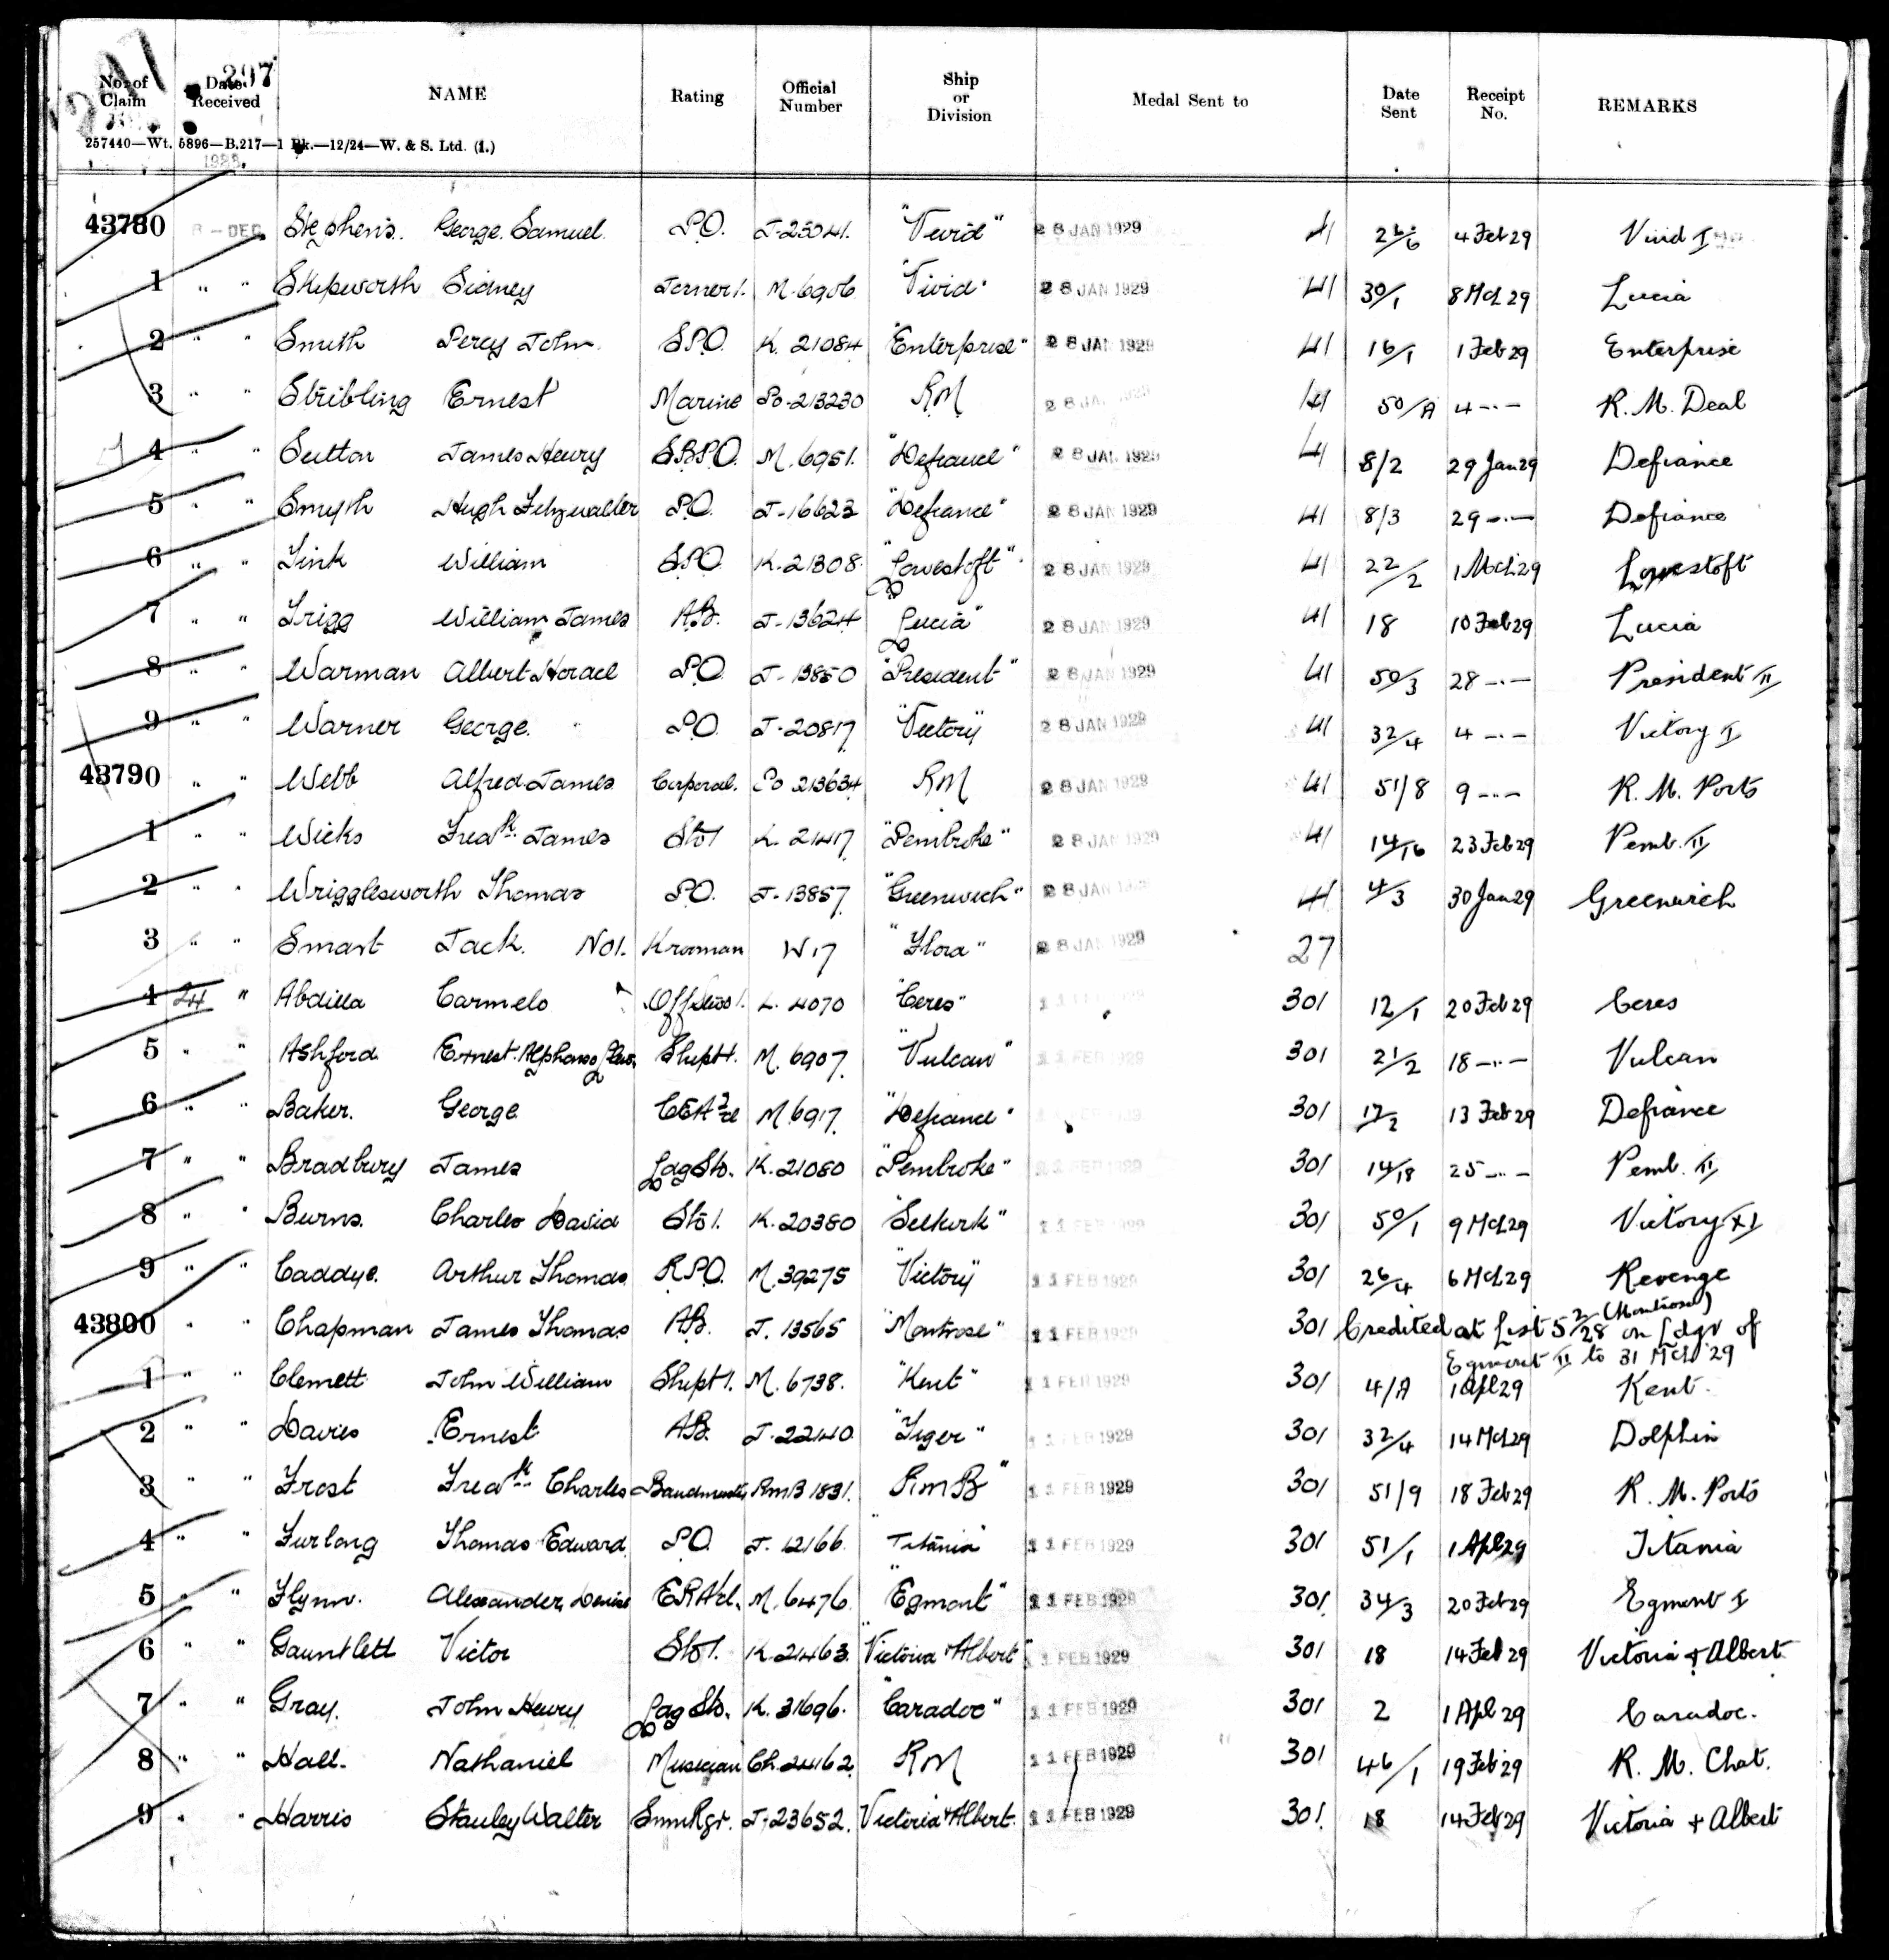 297
No. of Claim Date Received NAME Rating Official Number Ship or Division Medal Sent to Date Sent Receipt No. REMARKS
257440—Wt. 5896—B.217—1 Bk.—12/24—W. & S. Ltd. (1.)
1928.
43780 8 - DEC Stephens. George Samuel. P.O. J-25041. "Vivid" 28 JAN 1929 41 26/6 4 Feb 29 Vivid I
1 " " Skepworth Sidney Joiner 1. M. 6906 "Vivid" 28 JAN 1929 41 30/1 8 Mch 29 Lucia
2 " " Smith Percy John. S.P.O. K. 21084 "Enterprise" 28 JAN 1929 41 16/1 1 Feb 29 Enterprise
3 " " Stribling Ernest Marine Po-213230 RM 28 JAN 1929 41 50/A 4 -..- R. M. Deal
4 " " Sutton James Henry S.B.P.O. M. 6951. "Defiance" 28 JAN 1929 41 8/2 29 Jan 29 Defiance
5 " " Smyth Hugh Fitzwalter P.O. J-16623 "Defiance" 28 JAN 1929 41 8/3 29 -..- Defiance
6 " " Tink William S.P.O. K. 21308. "Lowestoft" 28 JAN 1929 41 22/2 1 Mch 29 Lowestoft
7 " " Trigg William James A.B. J-13624 "Lucia" 28 JAN 1929 41 18 10 Feb 29 Lucia
8 " " Warman Albert Horace P.O. J-13850 "President" 28 JAN 1929 41 50/3 28 -..- President II
9 " " Warner George. P.O. J-20817 "Victory" 28 JAN 1929 41 32/4 4 -..- Victory I
43790 " " Webb Alfred James Corporal. Po 213634 RM 28 JAN 1929 41 51/8 9 -..- R. M. Ports
1 " " Wicks Fredk. James Sto 1 K. 21417 "Pembroke" 28 JAN 1929 41 14/16 23 Feb 29 Pemb. II
2 " " Wrigglesworth Thomas P.O. J-13857. "Greenwich" 28 JAN 1929 41 4/3 30 Jan 29 Greenwich
3 " " Smart Jack. No 1. Krooman W 17 "Flora" 28 JAN 1929 27
4 24 " Abdilla Carmelo Off Stwd 1. L. 4070 "Ceres" 11 FEB 1929 301 12/1 20 Feb 29 Ceres
5 " " Ashford Ernest Alphonso Shipt 1. M. 6907. "Vulcan" 11 FEB 1929 301 21/2 18 -..- Vulcan
6 " " Baker. George. M. 6917. "Defiance" 11 FEB 1929 301 17/2 13 Feb 29 Defiance
7 " " Bradbury James Ldg Sto. K. 21080 "Pembroke" 11 FEB 1929 301 14/18 25 -..- Pemb. II
8 " " Burns. Charles David Sto 1. K. 20380 "Selkirk" 11 FEB 1929 301 50/1 9 Mch 29 Victory XI
9 " " Caddye. Arthur Thomas R.P.O. M. 39275 "Victory" 11 FEB 1929 301 26/4 6 Mch 29 Revenge
43800 " " Chapman James Thomas A.B. J. 13565 "Montrose" 11 FEB 1929 301 Credited at List 5 2/28 (Montrose) on Ldgr of
Egmont II to 31 Mch 29
1 " " Clemett John William Shipt 1. M. 6738. "Kent" 11 FEB 1929 301 4/A 1 Apl 29 Kent.
2 " " Davies Ernest A.B. J. 22140 "Tiger" 11 FEB 1929 301 32/4 14 Mch 29 Dolphin
3 " " Frost Fredk. Charles Bandmaster RMB 1831. R M B" 11 FEB 1929 301 51/9 18 Feb 29 R. M. Ports
4 " " Furlong Thomas Edward P.O. J. 12166. "Titania 11 FEB 1929 301 51/1 1 Apl 29 Titania
5 " " Flynn. Alexander Denise E.R.A. M. 6476. "Egmont" 11 FEB 1929 301 34/3 20 Feb 29 Egmont I
6 " " Gauntlett Victor Sto 1. K. 21463. "Victoria & Albert" 11 FEB 1929 301 18 14 Feb 29 Victoria & Albert
7 " " Gray. John Henry Ldg Sto. K. 31696. "Caradoc" 11 FEB 1929 301 2 1 Apl 29 Caradoc.
8 " " Hall. Nathaniel Musician Ch. 24162. RM 11 FEB 1929 301 46/1 19 Feb 29 R. M. Chat.
9 " " Harris Stanley Walter J-23652. Victoria & Albert. 11 FEB 1929 301. 18 14 Feb 29 Victoria & Albert